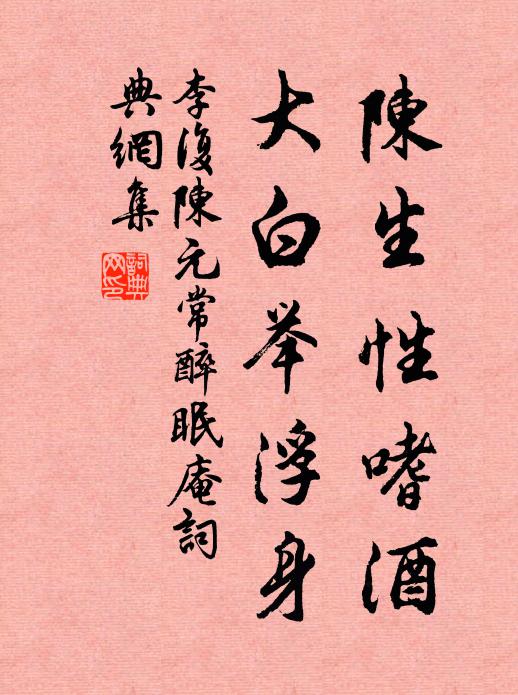 陳生性嗜酒
大白举浮身
李復陳元常醉眠庵詞
典網集
詞典
网印